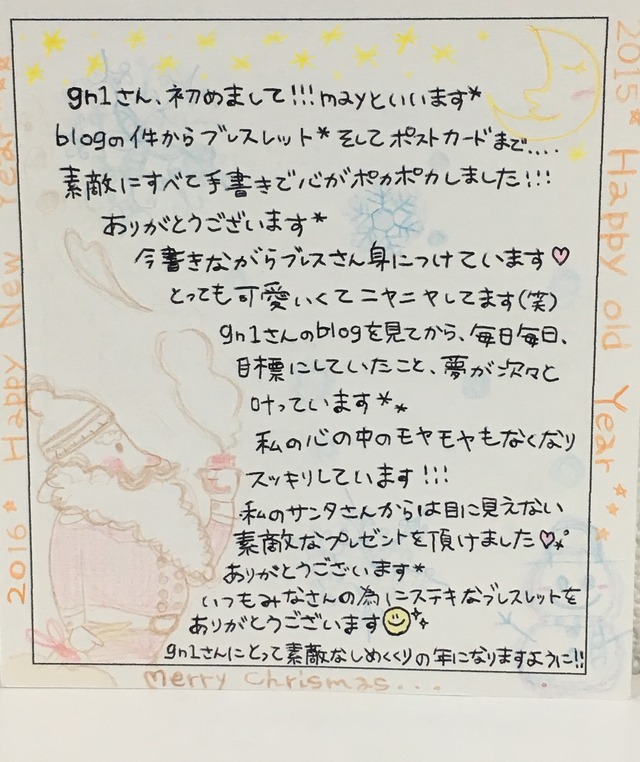 gn1さん、初めまして!!! mayといいます*
blogの件からブレスレット*そしてポストカードまで....
素敵にすべて手書きで心がポカポカしました!!!
ありがとうございます*
今書きながらブレスさん身につけています♡
とっても可愛いくてニヤニヤしてます(笑)
gn1さんのblogを見てから、毎日毎日、
目標にしていたこと、夢が次々と
叶っています**
私の心の中のモヤモヤもなくなり
スッキリしています!!!
私のサンタさんからは目に見えない
素敵なプレゼントを頂けました♡*゜
ありがとうございます*
いつもみなさんの為にステキなブレスレットを
ありがとうございます
gn1さんにとって素敵なしめくくりの年になりますように!!
Merry Chrismas...
2016* Happy New Year**
2015* Happy old Year***